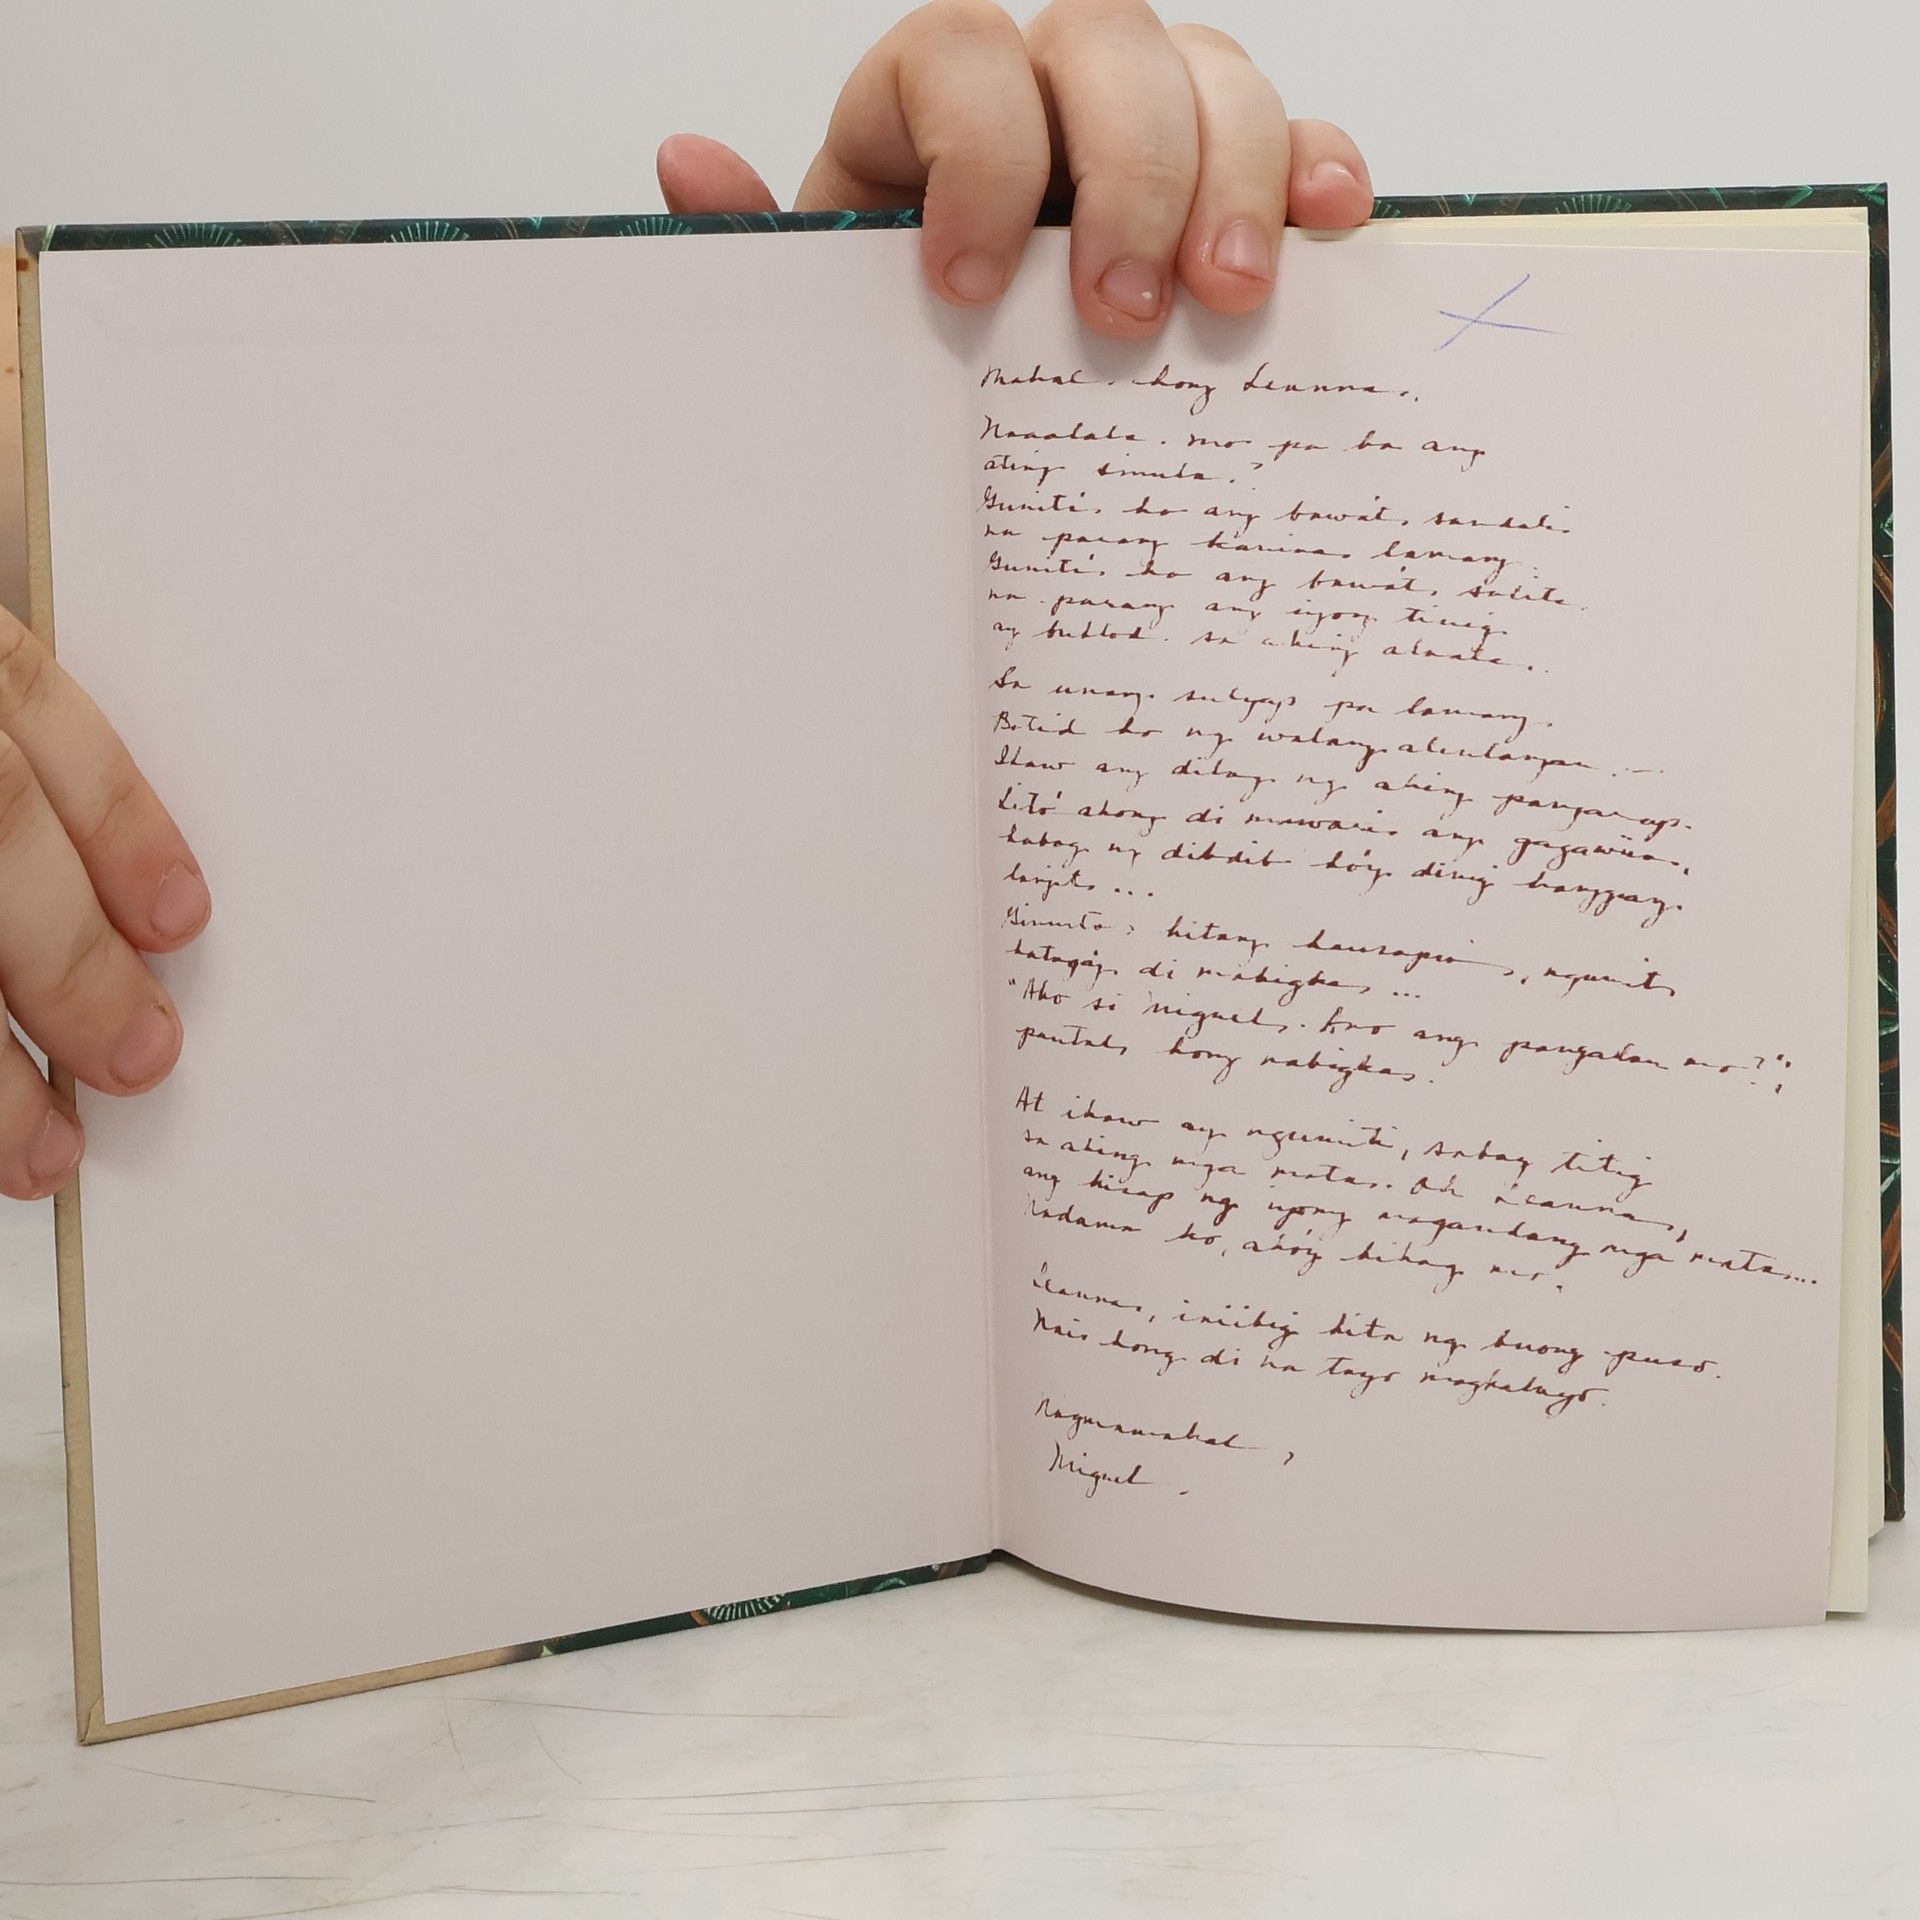 Mahal kong Leanna,
Naaalala mo pa ba ang
ating simula?
Gunitá ko ang bawat sandali
na parang kanina lamang.
Gunitá ko ang bawat salita
na parang ang iyong tinig
ay buklod sa aking alaala.
Sa unang sulyap pa lamang
Batid ko ng walang alinlangan...
Ikaw ang dilag ng aking pangarap.
Litó akong di mawari ang gagawin,
kabog ng dibdib kó'y dinig hanggang
langit...
Ginusto kitang kausapin, ngunit
katagá'y di mabigkas...
"Ako si Miguel. Ano ang pangalan mo?";
pautal kong nabigkas.
At ikaw ay ngumiti, sabay titig
sa aking mga mata. Oh Leanna,
ang kisap ng iyong magandang mga mata...
Nadama ko, akó'y bihag mo.
Leanna, iniibig kita ng buong puso.
Nais kong di na tayo magkalayo.
Nagmamahal,
Miguel.